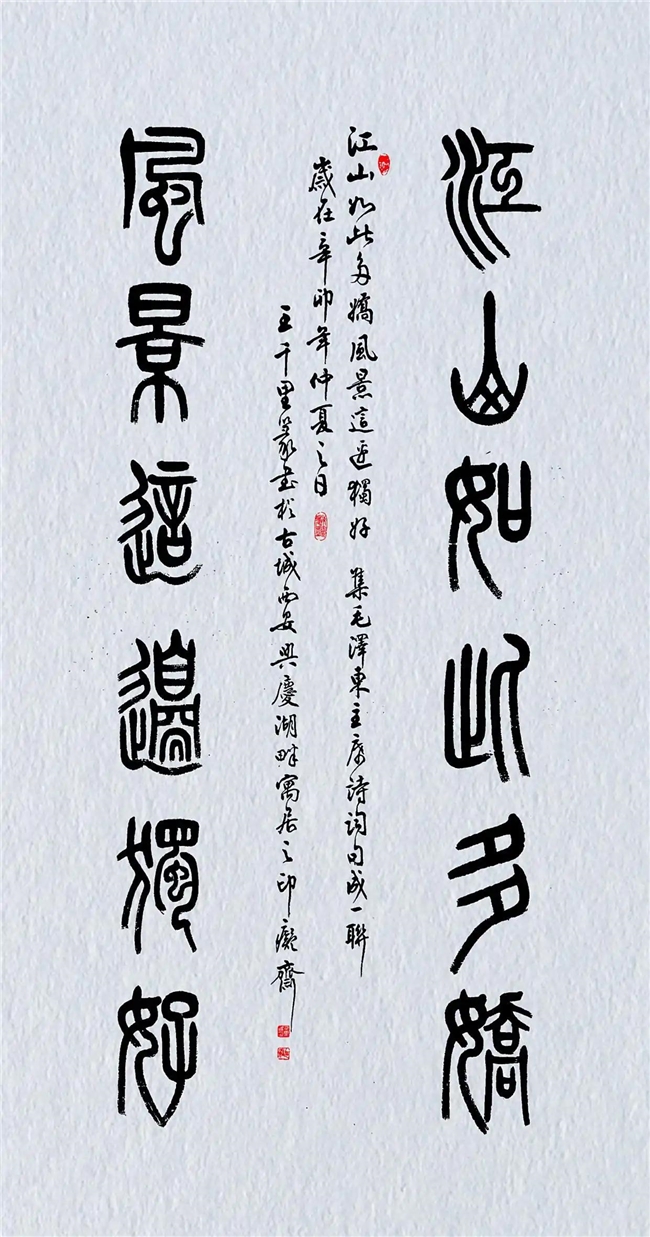 江山如此多嬌
江山如此多嬌風景這邊獨好 集毛澤東主席詩詞句成一聯
歲在辛卯年仲夏之日
王千里篆書於古城西安興慶湖畔寓居之印癡齋
風景這邊獨好